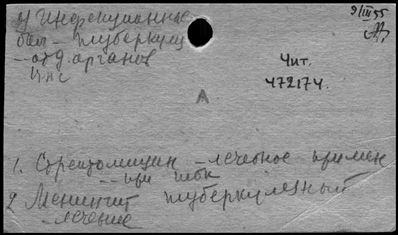 у) Инфекционные
бол. - туберкул
-- отд. органов
ЦНС
9/III 55
Чит.
472174.
А
1. Стрептомицин - лечебное примен
-- при тбк
2 Менингит туберкулезный
- лечение